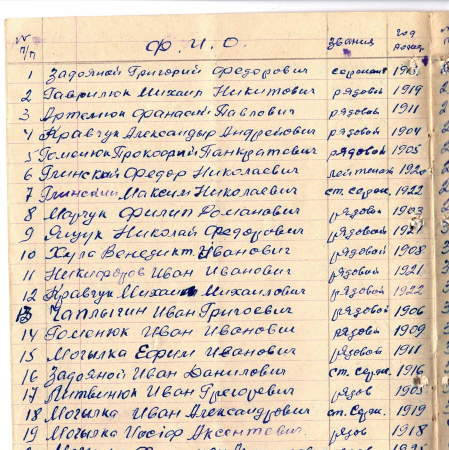 № п/п Ф. И. О. Звания год рожд.
1 Задояной Григорий Федорович сержант
2 Гаврилюк Михаил Никитович рядовой 1919
3 Артемюк Фанасий Павлович рядовой 1911
4 Кравчук Александыр Андреевич рядовой 1904
5 Гоменюк Прокофий Панкратович рядовой 1905
6 Глинский Федор Николаевич лейтенант 1920
7 Глинский Максим Николаевич ст. серж. 1922
8 Марчук Филип Романович рядовой 1903
9 Ящук Николай Федорович рядовой
10 Хула Венедикт Иванович рядовой 1908
11 Никифоров Иван Иванович рядовой 1921
12 Кравчук Михаил Михаилович рядовой 1922
13 Чаплыгин Иван Григоевич рядовой 1906
14 Гоменюк Иван Иванович рядовой 1909
15 Могылка Ефим Иванович рядовой 1911
16 Задояной Иван Данилович ст. серж. 1916
17 Литвинюк Иван Грегоревич рядов 1903
18 Могылка Иван Александрович ст. серж. 1919
19 Могылка Иосіф Аксентевич. рядов 1918